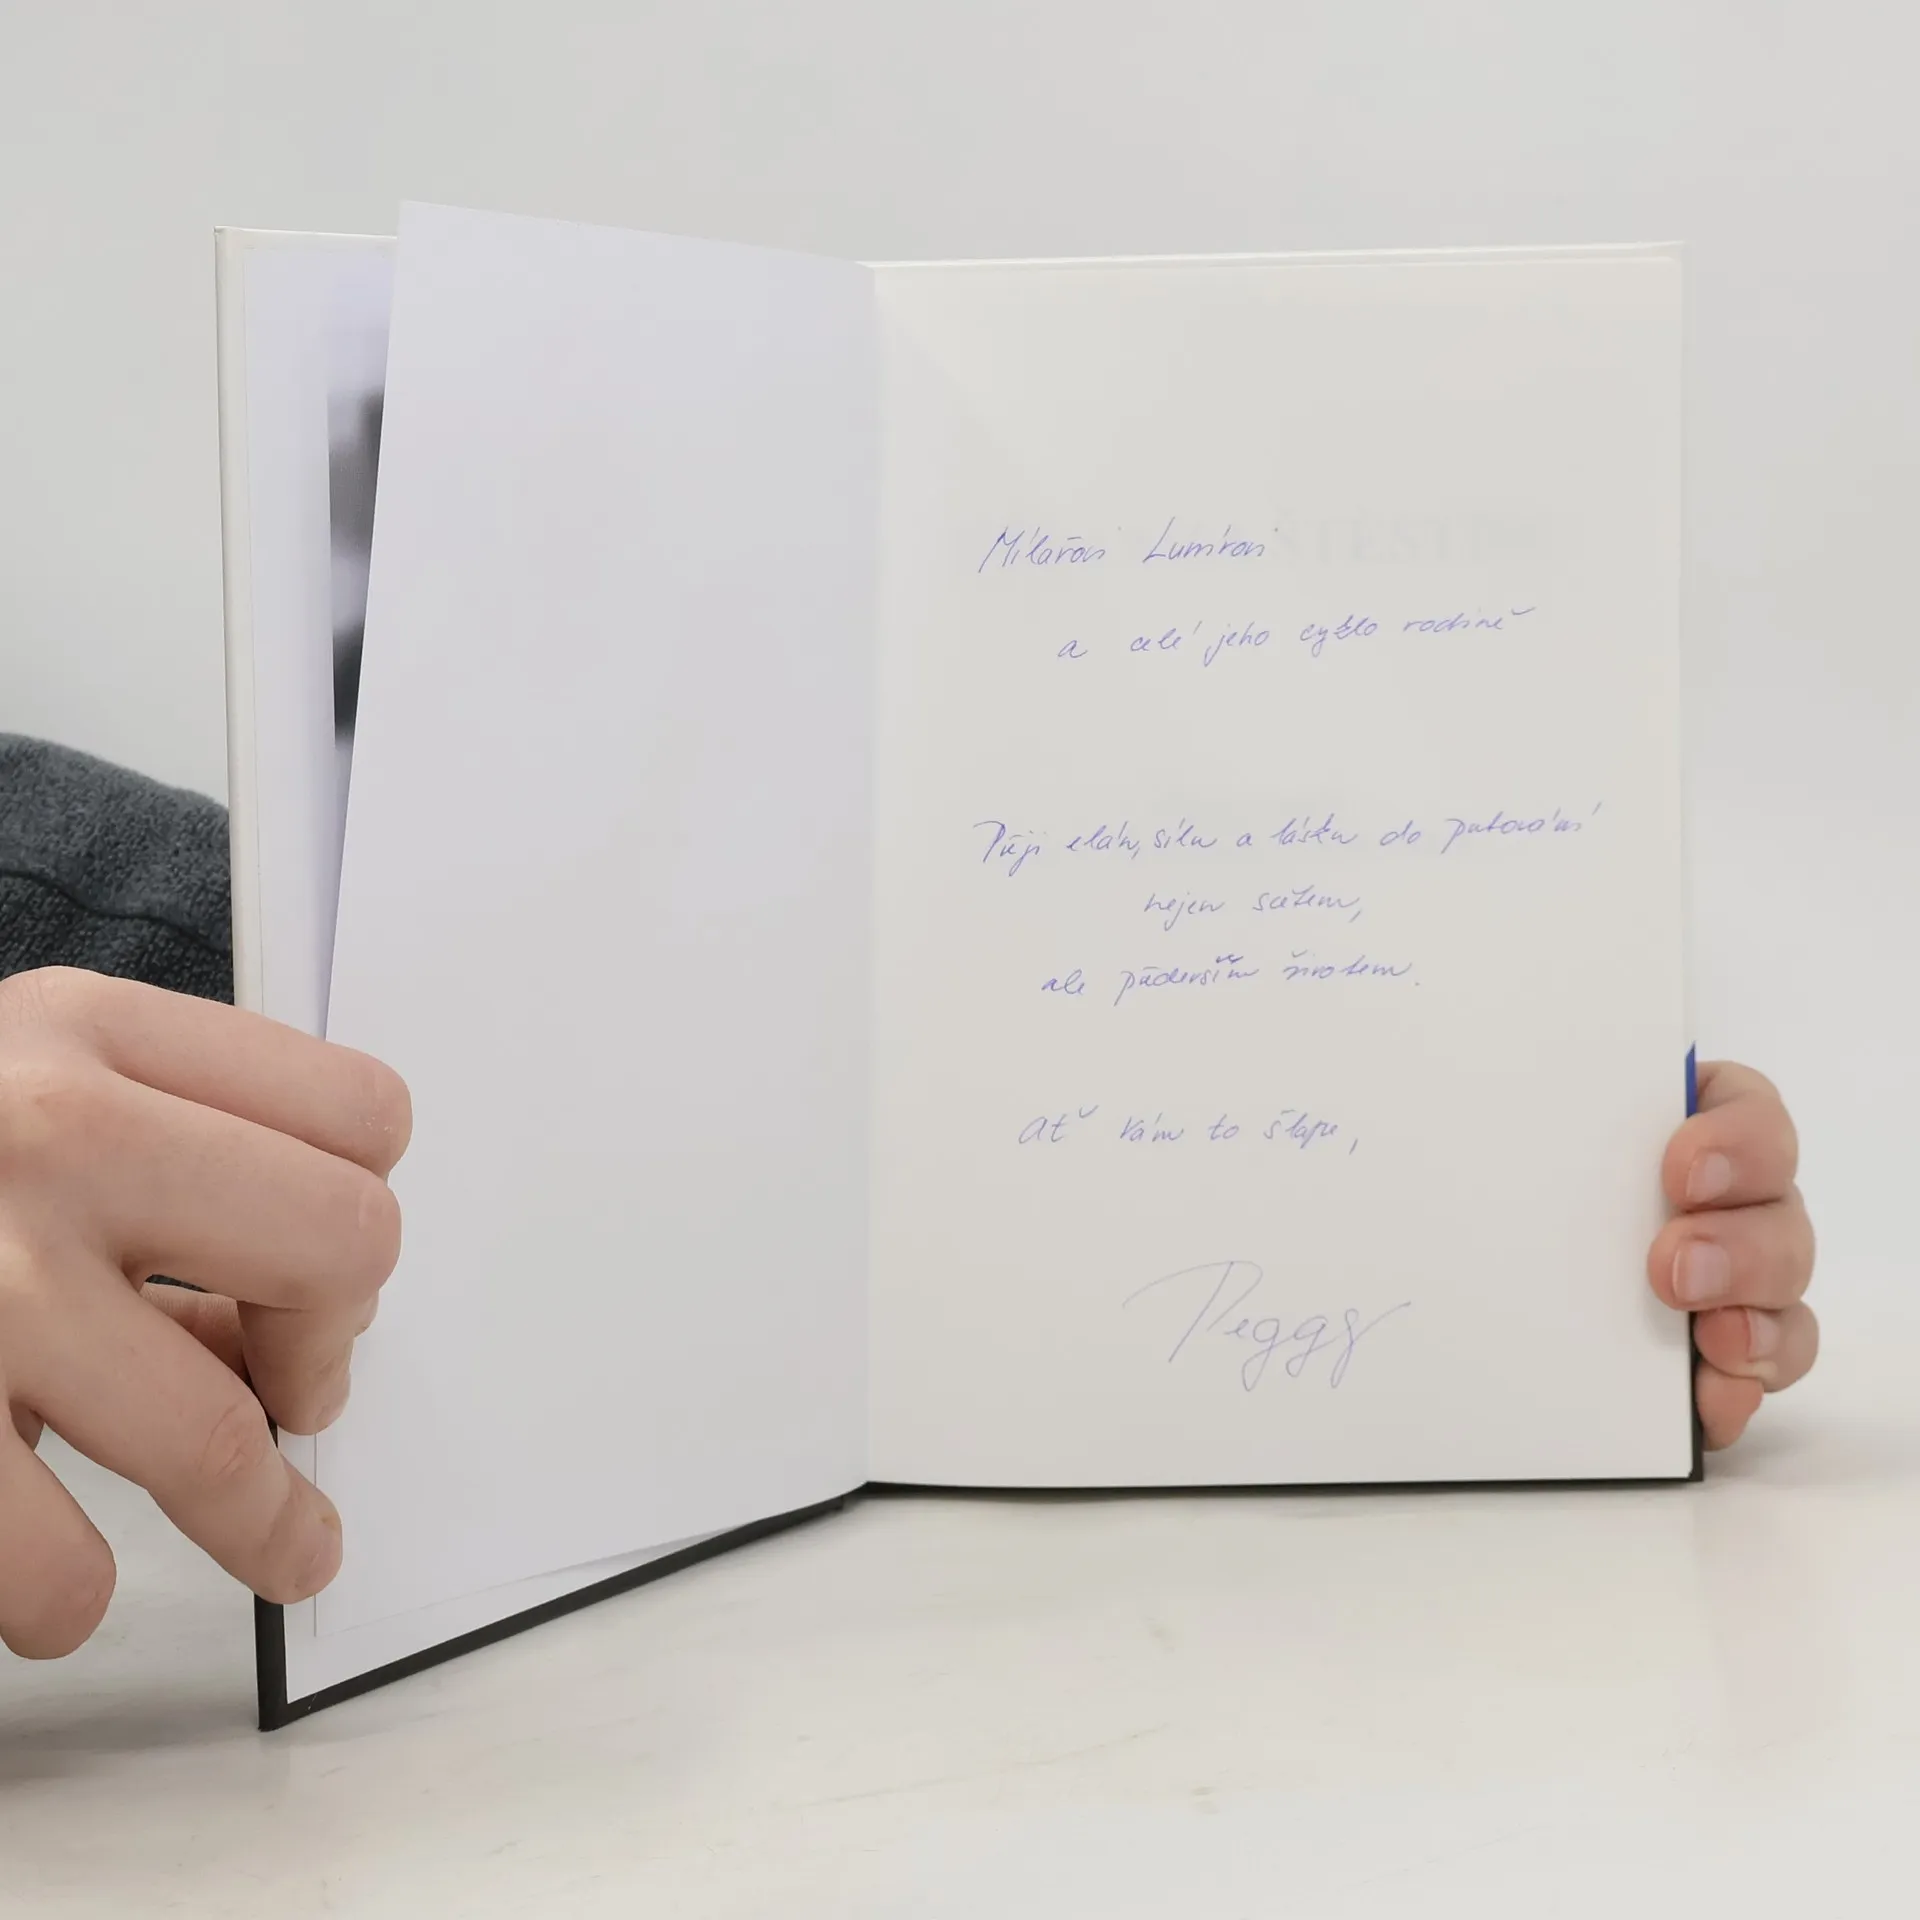 Mílařovi Lumírovi
a celé jeho cyklo rodině
Přeji elán, sílu a lásku do putování
nejen světem,
ale především životem.
Ať Vám to šlape,
Peggy